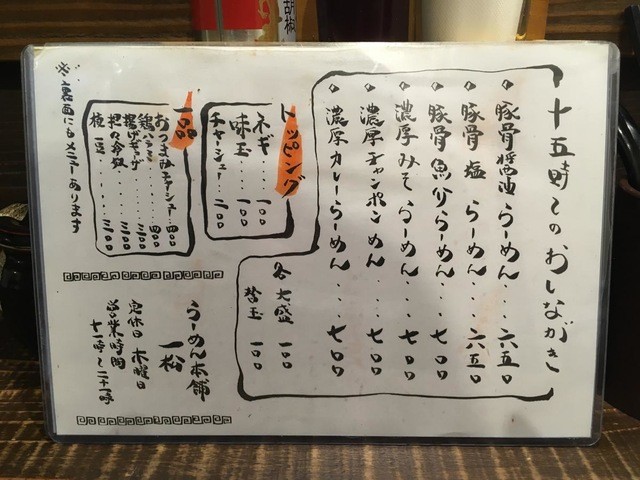 胡椒
十五時〜のおしながき
豚骨醤油らーめん・・・六五〇
豚骨塩らーめん・・・六五〇
豚骨魚介らーめん・・・七〇〇
濃厚みそらーめん・・・七〇〇
濃厚チャンポンめん・・・七〇〇
濃厚カレーらーめん・・・七〇〇
各大盛 一〇〇
替玉 一〇〇
トッピング
ネギ・・・・一〇〇
味玉・・・一〇〇
チャーシュー・・二〇〇
一品
おつまみチャーシュー・・四〇〇
鶏ハラミ・・・・・四〇〇
揚げギョーザ・・・三〇〇
枝豆・・・・三〇〇
※裏面にもメニューあります
らーめん本舗
一松
定休日 木曜日
営業時間
十一時〜二十一時